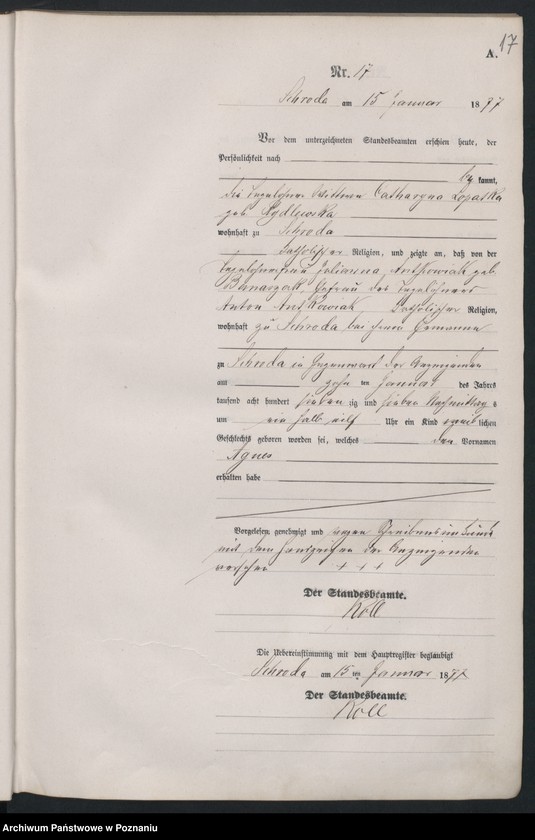 17
A.
Nr. 17
Schroda am 15 Januar 1877
Vor dem unterzeichneten Standesbeamten erschien heute, der
Persönlichkeit nach
be kannt,
die Tagelöhner Wittwe Catharyna Lopatka
geb.
wohnhaft zu Schroda
katholischer Religion, und zeigte an, daß von der
Tagelöhnerfrau Julianna Antkowiak geb.
Bednarzak, Ehefrau des Tagelöhners
Anton Antkowiak, katholischer Religion,
wohnhaft zu Schroda bei ihrem Ehemanne
zu Schroda in Gegenwart der Anzeigenden
am zehn ten Januar des Jahres
tausend acht hundert sieben zig und sieben Nachmittags
um ein halb elf Uhr ein Kind weib lichen
Geschlechts geboren worden sei, welches den Vornamen
Agnes
erhalten habe
Vorgelesen, genehmigt und wegen Schreibensunkunde
mit dem Handzeichen der Anzeigenden
versehen + + +
Der Standesbeamte.
Koll
Die Uebereinstimmung mit dem Hauptregister beglaubigt
Schroda am 15 ten Januar 1877
Der Standesbeamte.
Koll
Archiwum Państwowe w Poznaniu